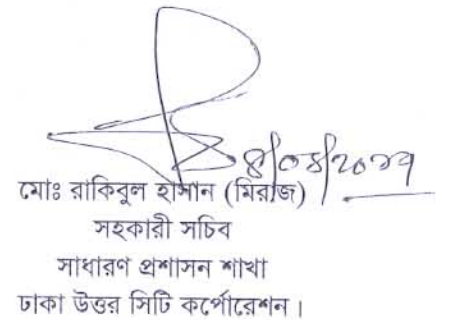 ৪/০৪/২০১৭
মোঃ রাকিবুল হাসান (মিরাজ)
সহকারী সচিব
সাধারণ প্রশাসন শাখা
ঢাকা উত্তর সিটি কর্পোরেশন।